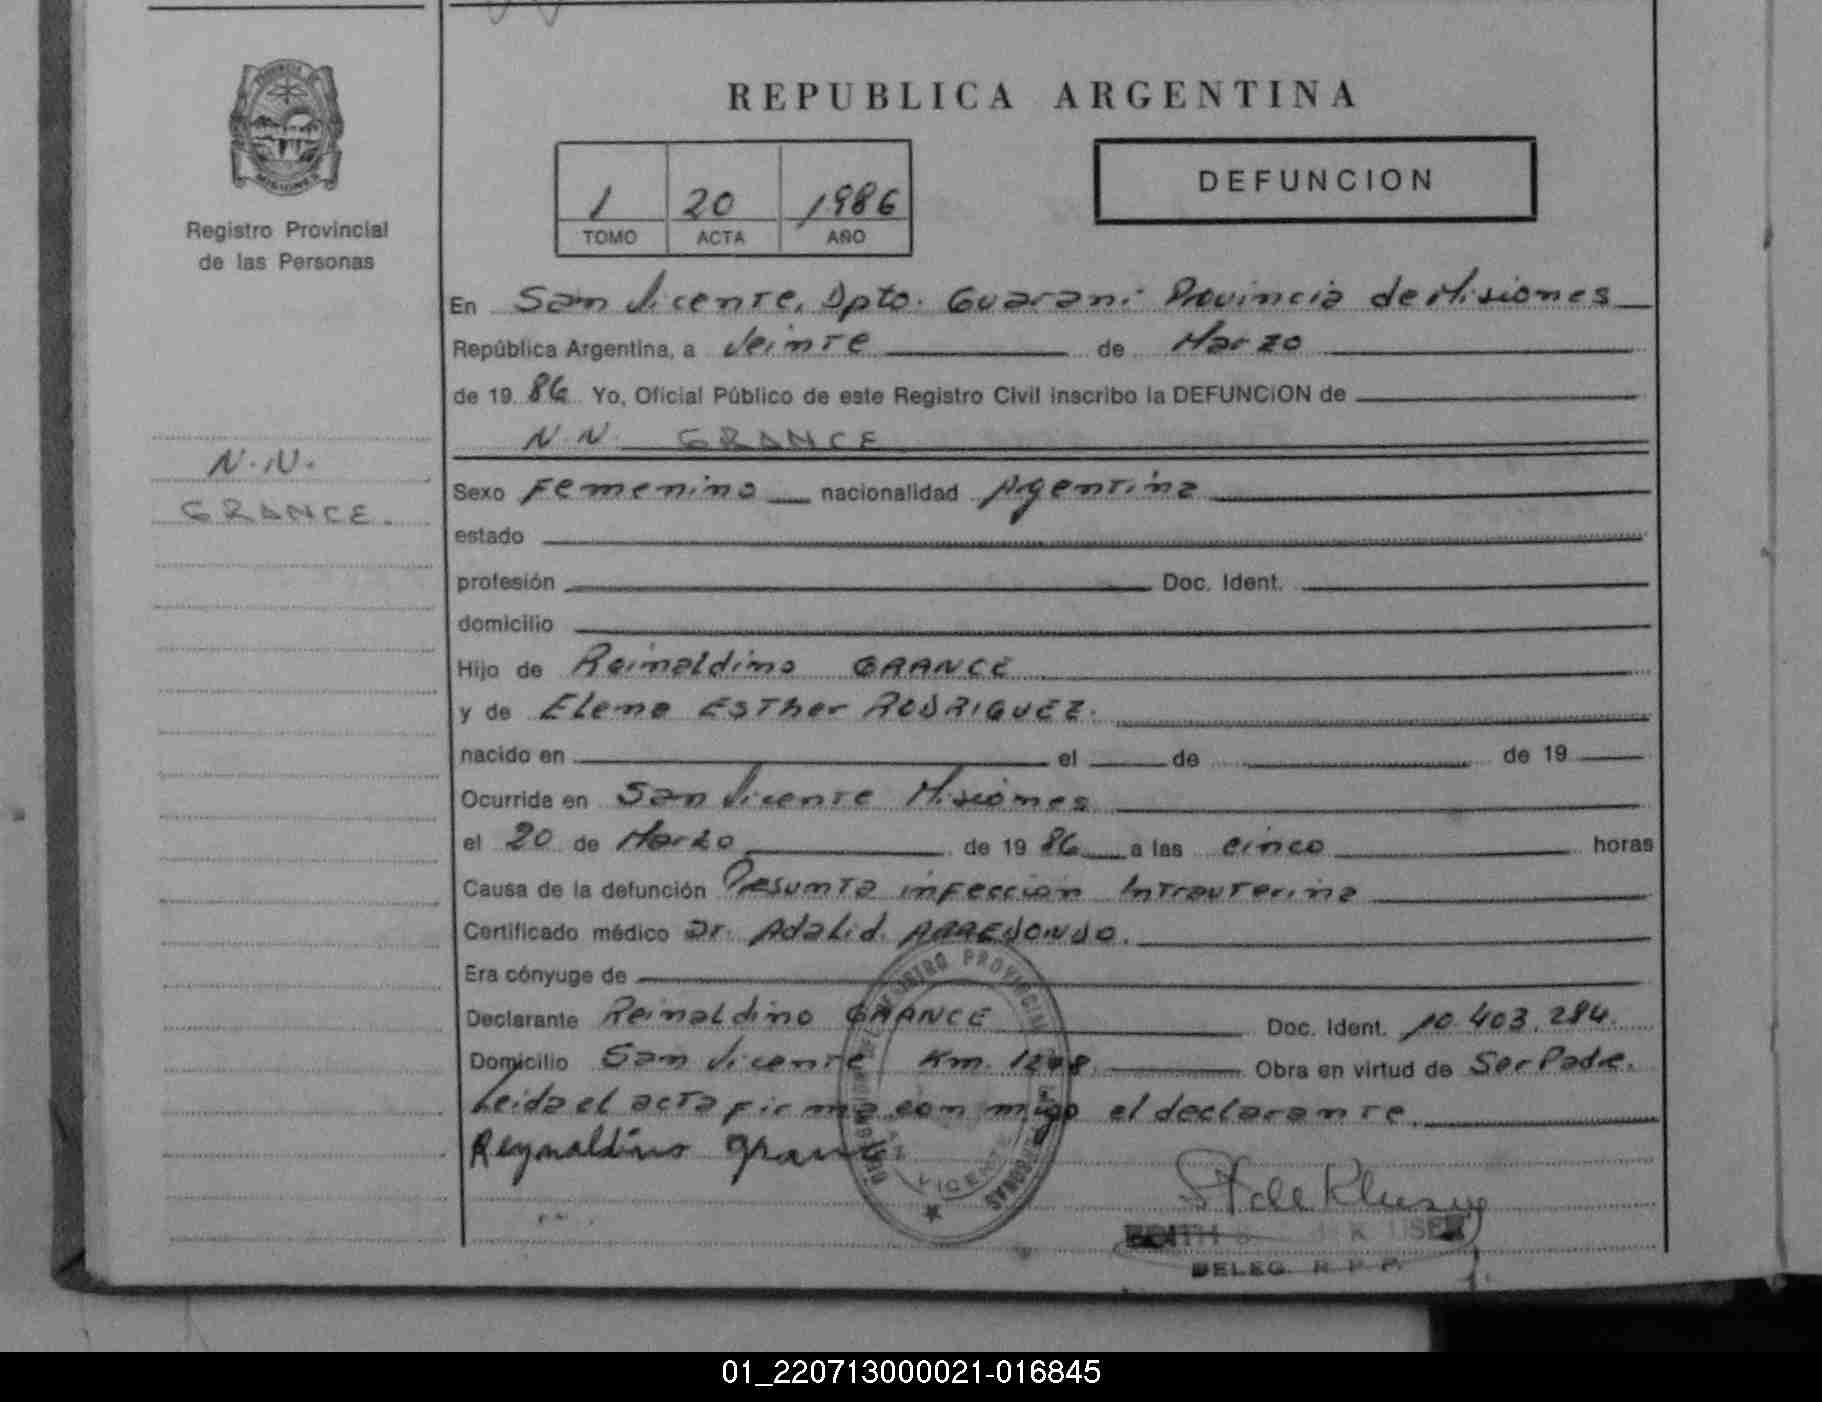 PROVINCIA DE
MISIONES
Registro Provincial
de las Personas
N.N.
GRANCE.
REPUBLICA ARGENTINA
1 20 1986
TOMO ACTA AÑO
DEFUNCION
En San Vicente, Dpto. Guarani Provincia de Misiones
República Argentina, a Veinte de Marzo
de 19 86 Yo, Oficial Público de este Registro Civil inscribo la DEFUNCION de
N.N. GRANCE
Sexo Femenino nacionalidad Argentina
estado
profesión Doc. Ident.
domicilio
Hijo de Reinaldino GRANCE
y de Elena Esther RODRIGUEZ.
nacido en el de de 19
Ocurrida en San Vicente Misiones
el 20 de Marzo de 19 86 a las cinco horas
Causa de la defunción Presunta infección Intrauterina
Certificado médico Dr. Adalid ARREDONDO.
Era cónyuge de
Declarante Reinaldino GRANCE Doc. Ident. 10.403.284.
Domicilio San Vicente Km. 1208 Obra en virtud de Ser Padre.
Leida el acta firma con migo el declarante.
Reynaldino Grance
REGISTRO PROVINCIAL
PERSONAS
VICENTE
EDITH
DELEG. R. P. P.
01_220713000021-016845